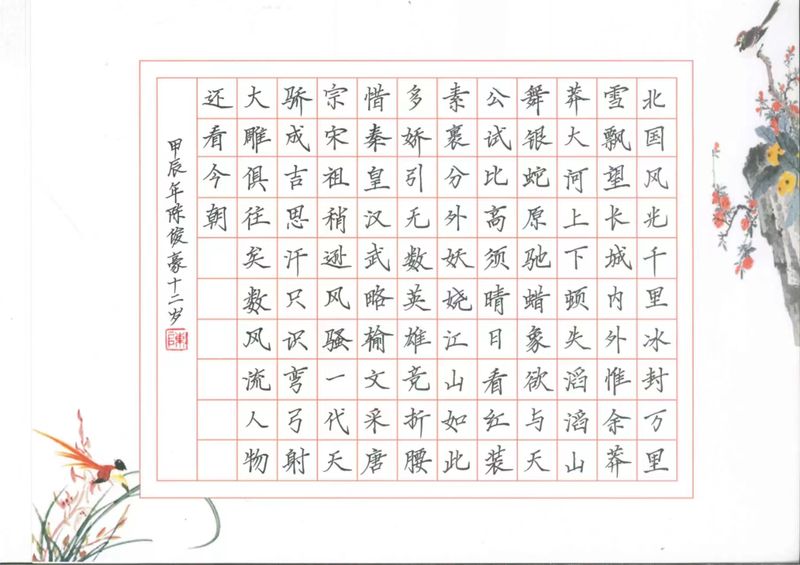 北国风光千里冰封万里
雪飘望长城内外惟余莽
莽大河上下顿失滔滔山
舞银蛇原驰蜡象欲与天
公试比高须晴日看红装
素裹分外妖娆江山如此
多娇引无数英雄竞折腰
惜秦皇汉武略输文采唐
宗宋祖稍逊风骚一代天
骄成吉思汗只识弯弓射
大雕俱往矣数风流人物
还看今朝
甲辰年陈俊豪十二岁